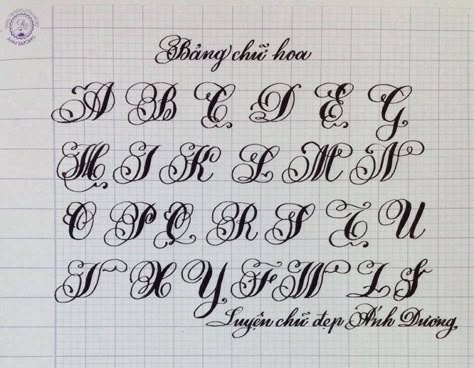 Bảng chữ hoa
A B C D E G
H I K L M N
O P Q R S T U
V X Y F W Z J
Luyện chữ đẹp Ánh Dương